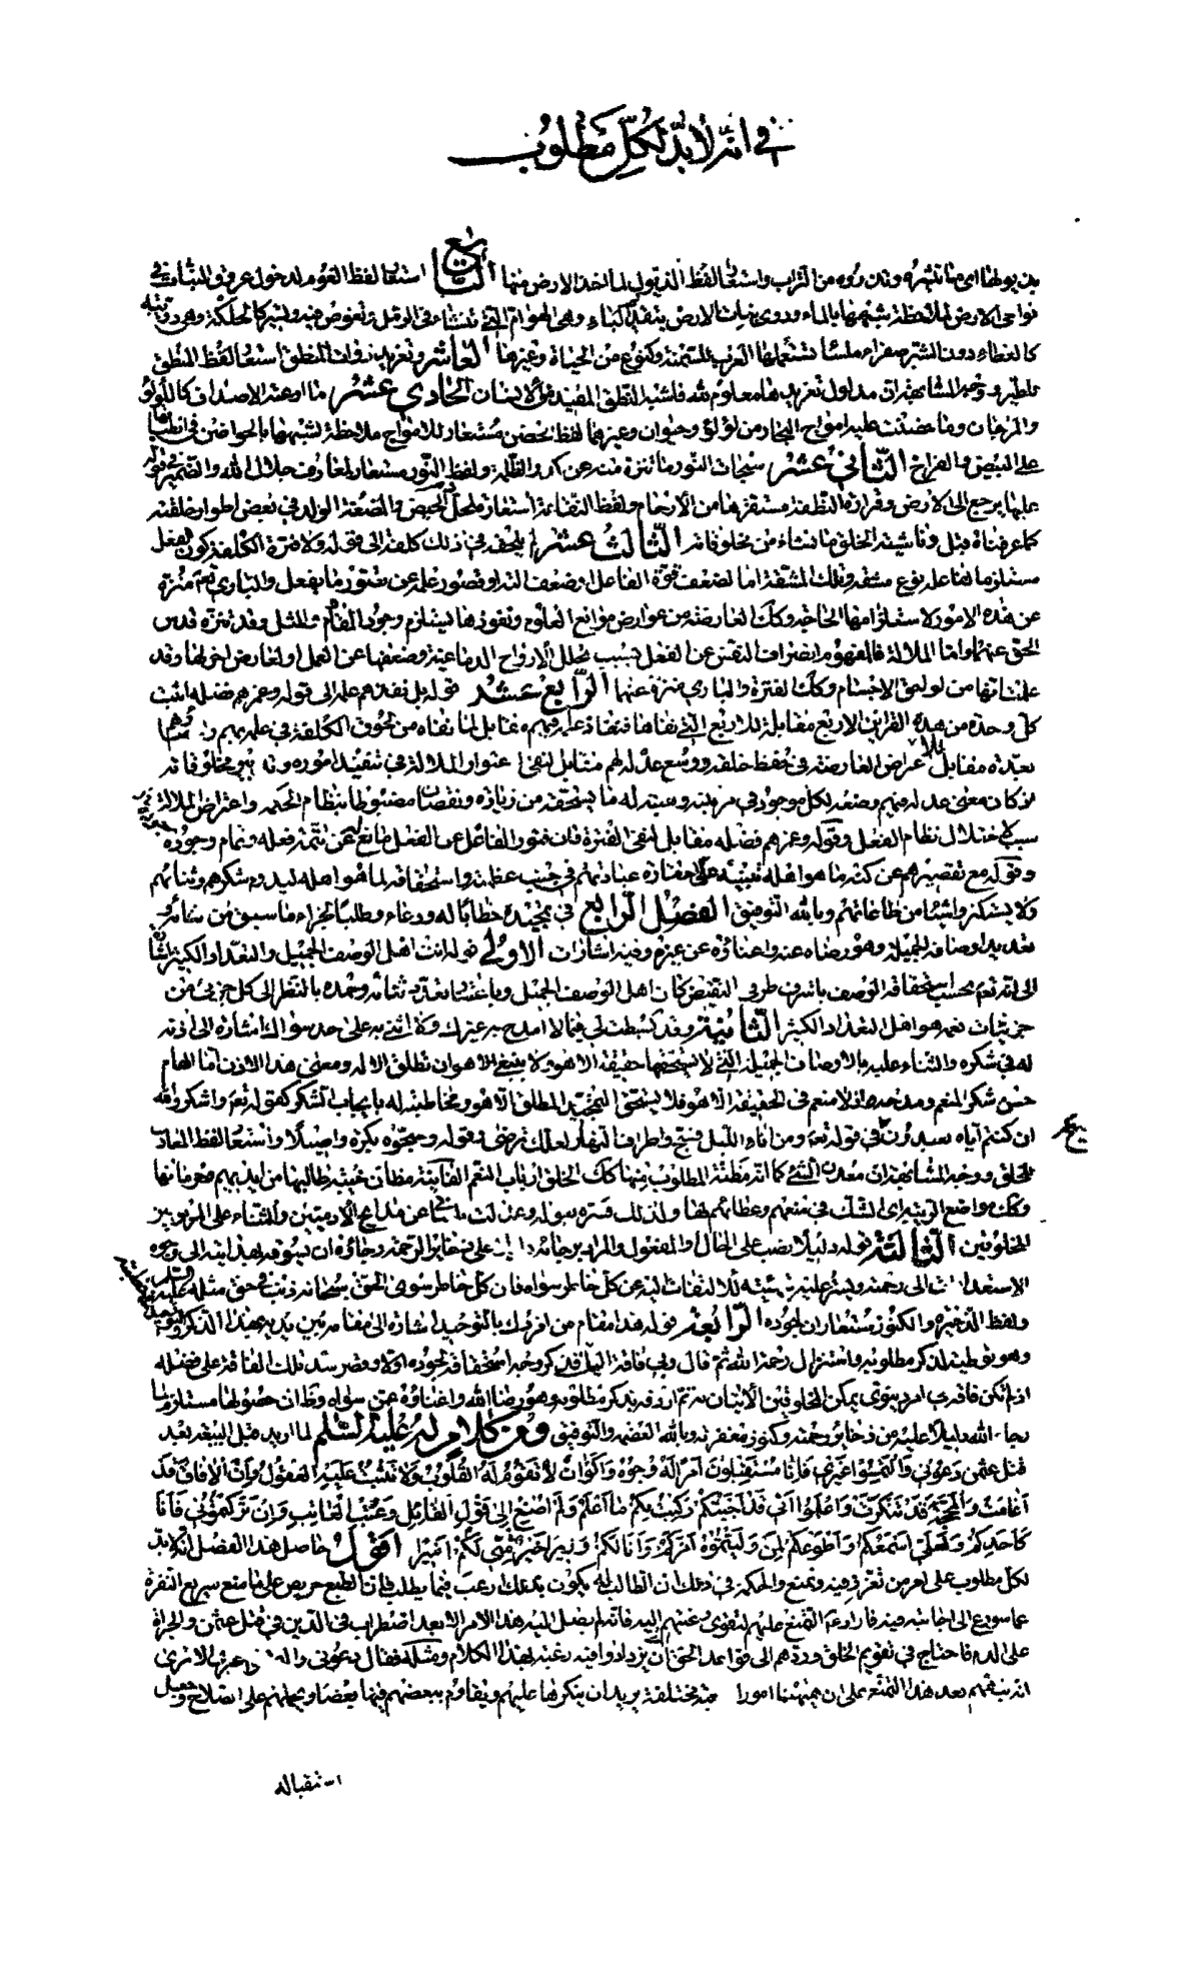 في انه لا بد لكل مطلوب
بذيولها اى ما تنثره وتذروه من التراب واستعار لفظ الذيول لما اخذ الارض منها التاسع استعار لفظ العوم لدخول عروق النبات في
نواحى الارض لملاحظة شبهها بالماء وروى بنات الارض بتقديم الباء وهى الهوام التى تنشاء فى الرمل وتغوص فيه وتسير كالحلكة وهى دويبة
كالعظاء دون الشبر صفراء ملساء تستعملها العرب للسمنة وكنوع من الحياة وغيرها العاشر وتغريد ذوات المنطق استعار لفظ النطق
للطير ووجه المشابهة ان مدلول تغريدها معلوم لله فاشبه النطق المفيد من الانسان الحادى عشر ما اوعته الاصداف كاللؤلؤ
والمرجان وما حضنت عليه امواج البحار من لؤلؤ وحيوان وغيرها لفظ الحضن مستعار للامواج ملاحظة لشبهها بالحواضن فى انطباقها
على البيض والفراخ الثانى عشر سبحات النور ما تنزه منه عن كدر الظلمة ولفظ النور مستعار لمعارف جلال الله والضمير فى قوله
عليها يرجع الى الارض وقرارة النطفة مستقرها من الارحام ولفظ النقاعة استعارة لمحل دم الحيض والمضغة الولد في بعض اطوار خلقته
كما عرفناه قبل وناشئة الخلق ما نشاء من مخلوقاته الثالث عشر لم يلحقه في ذلك كلفة الى قوله ولا فترة الكلفة كون الفعل
مستلزما لفاعله نوع مشقة وتلك المشقة اما لضعف قوة الفاعل او ضعف الته او قصور علمه عن تصور ما يفعل والبارى تعم منزه
عن هذه الامور لاستلزامها الحاجة وكك العارضة من عوارض موانع العلوم ونفوذها يستلزم وجود المقاوم والمثل وقد تنزه قدس
الحق عنها واما الملالة فالمفهوم انصراف النفس عن الفعل بسبب تحلل الارواح الدماغية وضعفها عن العمل او لعارض اخر لها وقد
علمت انها من لواحق الاجسام وكك الفترة والبارى منزه عنها الرابع عشر قوله بل نفذهم علمه الى قوله وغمرهم فضله اثبت
كل وحدة من هذه القراين الاربع مقابلة للاربع التى نفاها فنفاذ علمه فيهم مقابل لما نفاه من لحوق الكلفة في علمه بهم
بعده مقابل للاعراض العارضة فى حفظ خلقه ووسع عدله لهم مقابل لنفى اعتوار الملالة في تنفيذ اموره وتدابير مخلوقاته
اذ كان معنى عدله فيهم وضعه لكل موجود في مرتبته وهبته له ما يستحقه من زيادة ونقصان مضبوطا بنظام الحكمة واعتراض الملالة
سبب لاختلال نظام الفعل وقوله وغمرهم فضله مقابل لنفى الفترة فان فتور الفاعل عن الفعل مانع له عن تتمة فعله وتمام وجوده
وقوله مع تقصيرهم عن كنه ما هو اهله تنبيه على حقارة عبادتهم في جنب عظمته واستحقاقه لما هو اهله ليدوم شكرهم وثناؤهم
ولا يستكثروا شيئا من طاعاتهم وبالله التوفيق الفصل الرابع في تمجيده خطابا له ودعاء وطلبا لجزاء ما سبق من ثنائه و
تعديد اوصافه الجميلة وهو رضاه عنه واغناؤه عن غيره وفيه اشارات الاولى قوله انت اهل الوصف الجميل والتعداد الكثير اشارة
الى انه تعم بحسب استحقاقه الوصف باشرف طرفى النقيض كان اهل الوصف الجميل وباعتبار تعدد ثنائه وحمده بالنظر الى كل جزئى من
جزئيات نعمه هو اهل التعداد الكثير الثانية وقد بسطت لي فيما لا امدح به غيرك وكا اثنى به على احد سواك اشارة الى اذنه
له في شكره والثناء عليه بالاوصاف الجميلة التى لا يستحقها حقيقة الا هو ولا ينبغي الا هو ان تطلق الا له ومعنى هذا الاذن اما الهام
حسن شكر المنعم ومدحه اذ لا منعم فى الحقيقة الا هو فلا يستحق التمجيد المطلق الا هو ومخاطبته له بايجاب الشكر كقوله تعم واشكروا لله
ان كنتم اياه تعبدون في قوله تعم ومن اناء الليل فسبح واطراف النهار لعلك ترضى وقوله وسبحوه بكرة واصيلا واستعار لفظ المعادن
للخلق ووجه المشابهة ان معدن الشئ كما انه مظنة المطلوب منها كك الخلق ارباب النعم الفانية مظان خيبة طالبها من ايديهم وحرمانها
وكك مواضع الريبة اى الشك في منعهم وعطائهم لها ولذلك فسره بقوله وعدلت بلسانى عن مدايح الادميين والثناء على المربوبين
المخلوقين الثالثة قوله دليلا نصب على الحال او المفعول والمراد برجائه دليلا على ذخاير الرحمة وجائزه ان يسوقه بهدايته الى وجوه
الاستعداد الى رحمته ويستر عليه بتهيئته للالتفات اليه عن كل خاطر سواه فان كل خاطر سوى الحق سبحانه ذنب في حق مثله عليه السلم
ولفظ الذخيرة والكنوز مستعاران لجوده الرابعة قوله هذا مقام من افردك بالتوحيد اشارة الى مقامه بين يديه بهذا الذكر والتوحيد
وهو توطية لذكر مطلوبه واستنزال رحمة الله ثم قال ولي فاقة اليك فذكر وجه استحقاقه لجوده اولا وقصر سد تلك الفاقة على فضله
اذ لم تكن فاقة فى امر دنيوى يمكن المخلوقين الاتيان به ثم اردفه بذكر مطلوبه وهو رضا الله واغناؤه عمن سواه وظ ان حصولها مستلزم لما
رجاء الله دليلا عليه من ذخاير رحمته وكنوز مغفرته وبالله العصمة والتوفيق ومن كلام له عليه السلم لما اريد على البيعة بعد
قتل عثمن دَعُونِي وَالْتَمِسُوا غَيْرِي فَإِنَّا مُسْتَقْبِلُونَ أَمْرًا لَهُ وُجُوهٌ وَأَلْوَانٌ لا تَقُومُ لَهُ الْقُلُوبُ وَلا تَثْبُتُ عَلَيْهِ الْعُقُولُ وَإِنَّ الآفَاقَ قَدْ
أَغَامَتْ وَالْمَحَجَّةَ قَدْ تَنَكَّرَتْ وَاعْلَمُوا أَنِّي قَدْ أَجَبْتُكُمْ رَكِبْتُ بِكُمْ مَا أَعْلَمُ وَلَمْ أُصْغِ إِلَى قَوْلِ الْقَائِلِ وَعَتْبِ الْعَاتِبِ وَإِنْ تَرَكْتُمُونِي فَأَنَا
كَأَحَدِكُمْ وَلَعَلِّي أَسْمَعُكُمْ وَأَطْوَعُكُمْ لِمَنْ وَلَّيْتُمُوهُ أَمْرَكُمْ وَأَنَا لَكُمْ وَزِيرًا خَيْرٌ مِنِّي لَكُمْ أَمِيرًا اقول حاصل هذا الفصل انه لا بد
لكل مطلوب على امر من تعزز فيه وتمنع والحكمة في ذلك ان الطالب له يكون بذلك ارغب فيما يطلب فان الطبع حريص على ما منع سريع النفرة
عما سورع الى اجابته فيه فاراد عم التمنع عليهم لتقوى رغبتهم اليه فانه لم يصل اليه هذا الامر الا بعد اضطراب فى الدين في قتل عثمن والجراة
على الدم فاحتاج في تقويم الخلق وردهم الى قواعد الحق ان يزدادوا فيه رغبة بهذا الكلام ومثله فقال دعونى والتمسوا غيرى الا ترى
انه نبههم بعد هذا التمنع على ان ههنا امورا صعبة مختلفة يريد ان ينكرها عليهم ويقاوم ببعضهم فيها بعضا ويحملهم على الصلاح وجميل
استقباله